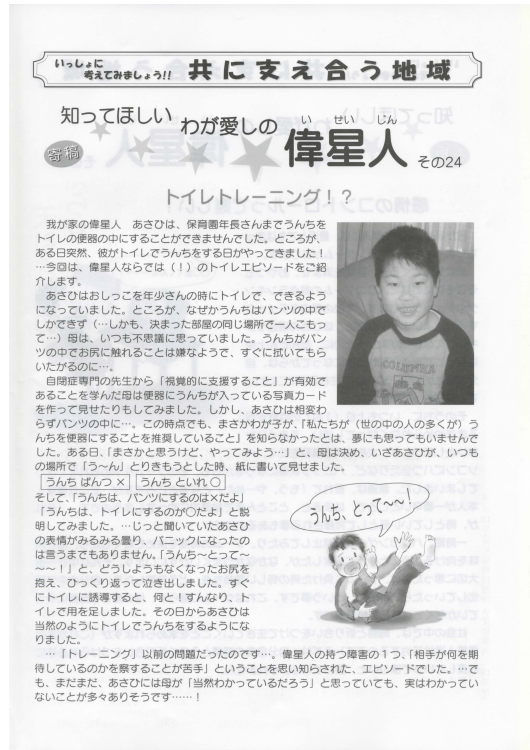 いっしょに
考えてみましょう!!
共に支え合う地域
知ってほしい わが愛しの 偉星人 その24
い せい じん
寄稿
トイレトレーニング！？
我が家の偉星人 あさひは、保育園年長さんまでうんちを
トイレの便器の中にすることができませんでした。ところが、
ある日突然、彼がトイレでうんちをする日がやってきました！
…今回は、偉星人ならでは（！）のトイレエピソードをご紹
介します。
あさひはおしっこを年少さんの時にトイレで、できるよう
になっていました。ところが、なぜかうんちはパンツの中で
しかできず（…しかも、決まった部屋の同じ場所で一人こもっ
て…）母は、いつも不思議に思っていました。うんちがパン
ツの中でお尻に触れることは嫌なようで、すぐに拭いてもら
いたがるのに…。
自閉症専門の先生から「視覚的に支援すること」が有効で
あることを学んだ母は便器にうんちが入っている写真カード
を作って見せたりもしてみました。しかし、あさひは相変わ
らずパンツの中に…。この時点でも、まさかわが子が、「私たちが（世の中の人の多くが）う
んちを便器にすることを推奨していること」を知らなかったとは、夢にも思ってもいませんで
した。ある日、「まさかと思うけど、やってみよう…」と、母は決め、いざあさひが、いつも
の場所で「う～ん」とりきもうとした時、紙に書いて見せました。
うんち ぱんつ × うんち といれ ○
そして、「うんちは、パンツにするのは×だよ」
「うんちは、トイレにするのが○だよ」と説
明してみました。…じっと聞いていたあさひ
の表情がみるみる曇り、パニックになったの
は言うまでもありません。「うんち～とって～
～～！」と、どうしようもなくなったお尻を
抱え、ひっくり返って泣き出しました。すぐ
にトイレに誘導すると、何と！すんなり、ト
イレで用を足しました。その日からあさひは
当然のようにトイレでうんちをするようにな
りました。
うんち、とって～～！
…「トレーニング」以前の問題だったのです…。偉星人の持つ障害の１つ、「相手が何を期
待しているのかを察することが苦手」ということを思い知らされた、エピソードでした。…で
も、まだまだ、あさひには母が「当然わかっているだろう」と思っていても、実はわかってい
ないことが多々ありそうです……！